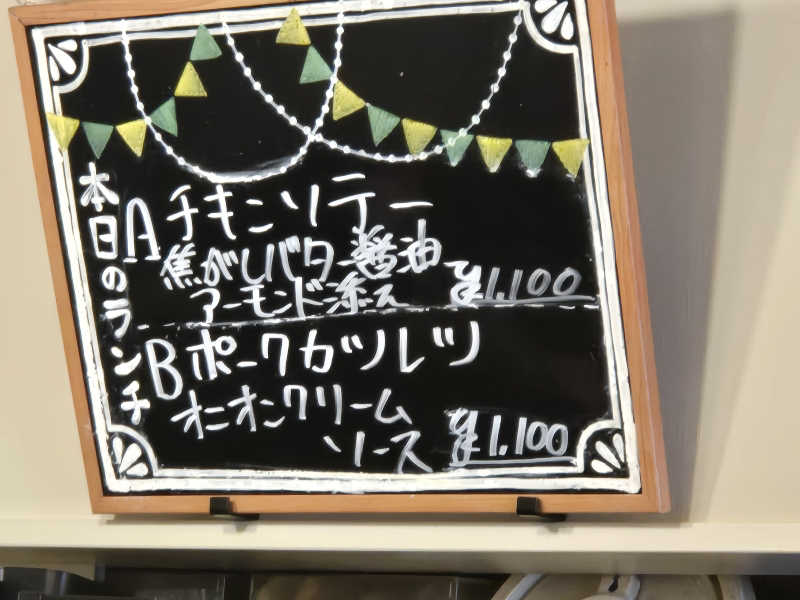 本日のランチ
A チキンソテー
焦がしバター醤油
アーモンド添え ¥1,100
B ポークカツレツ
オニオンクリーム
ソース ¥1,100